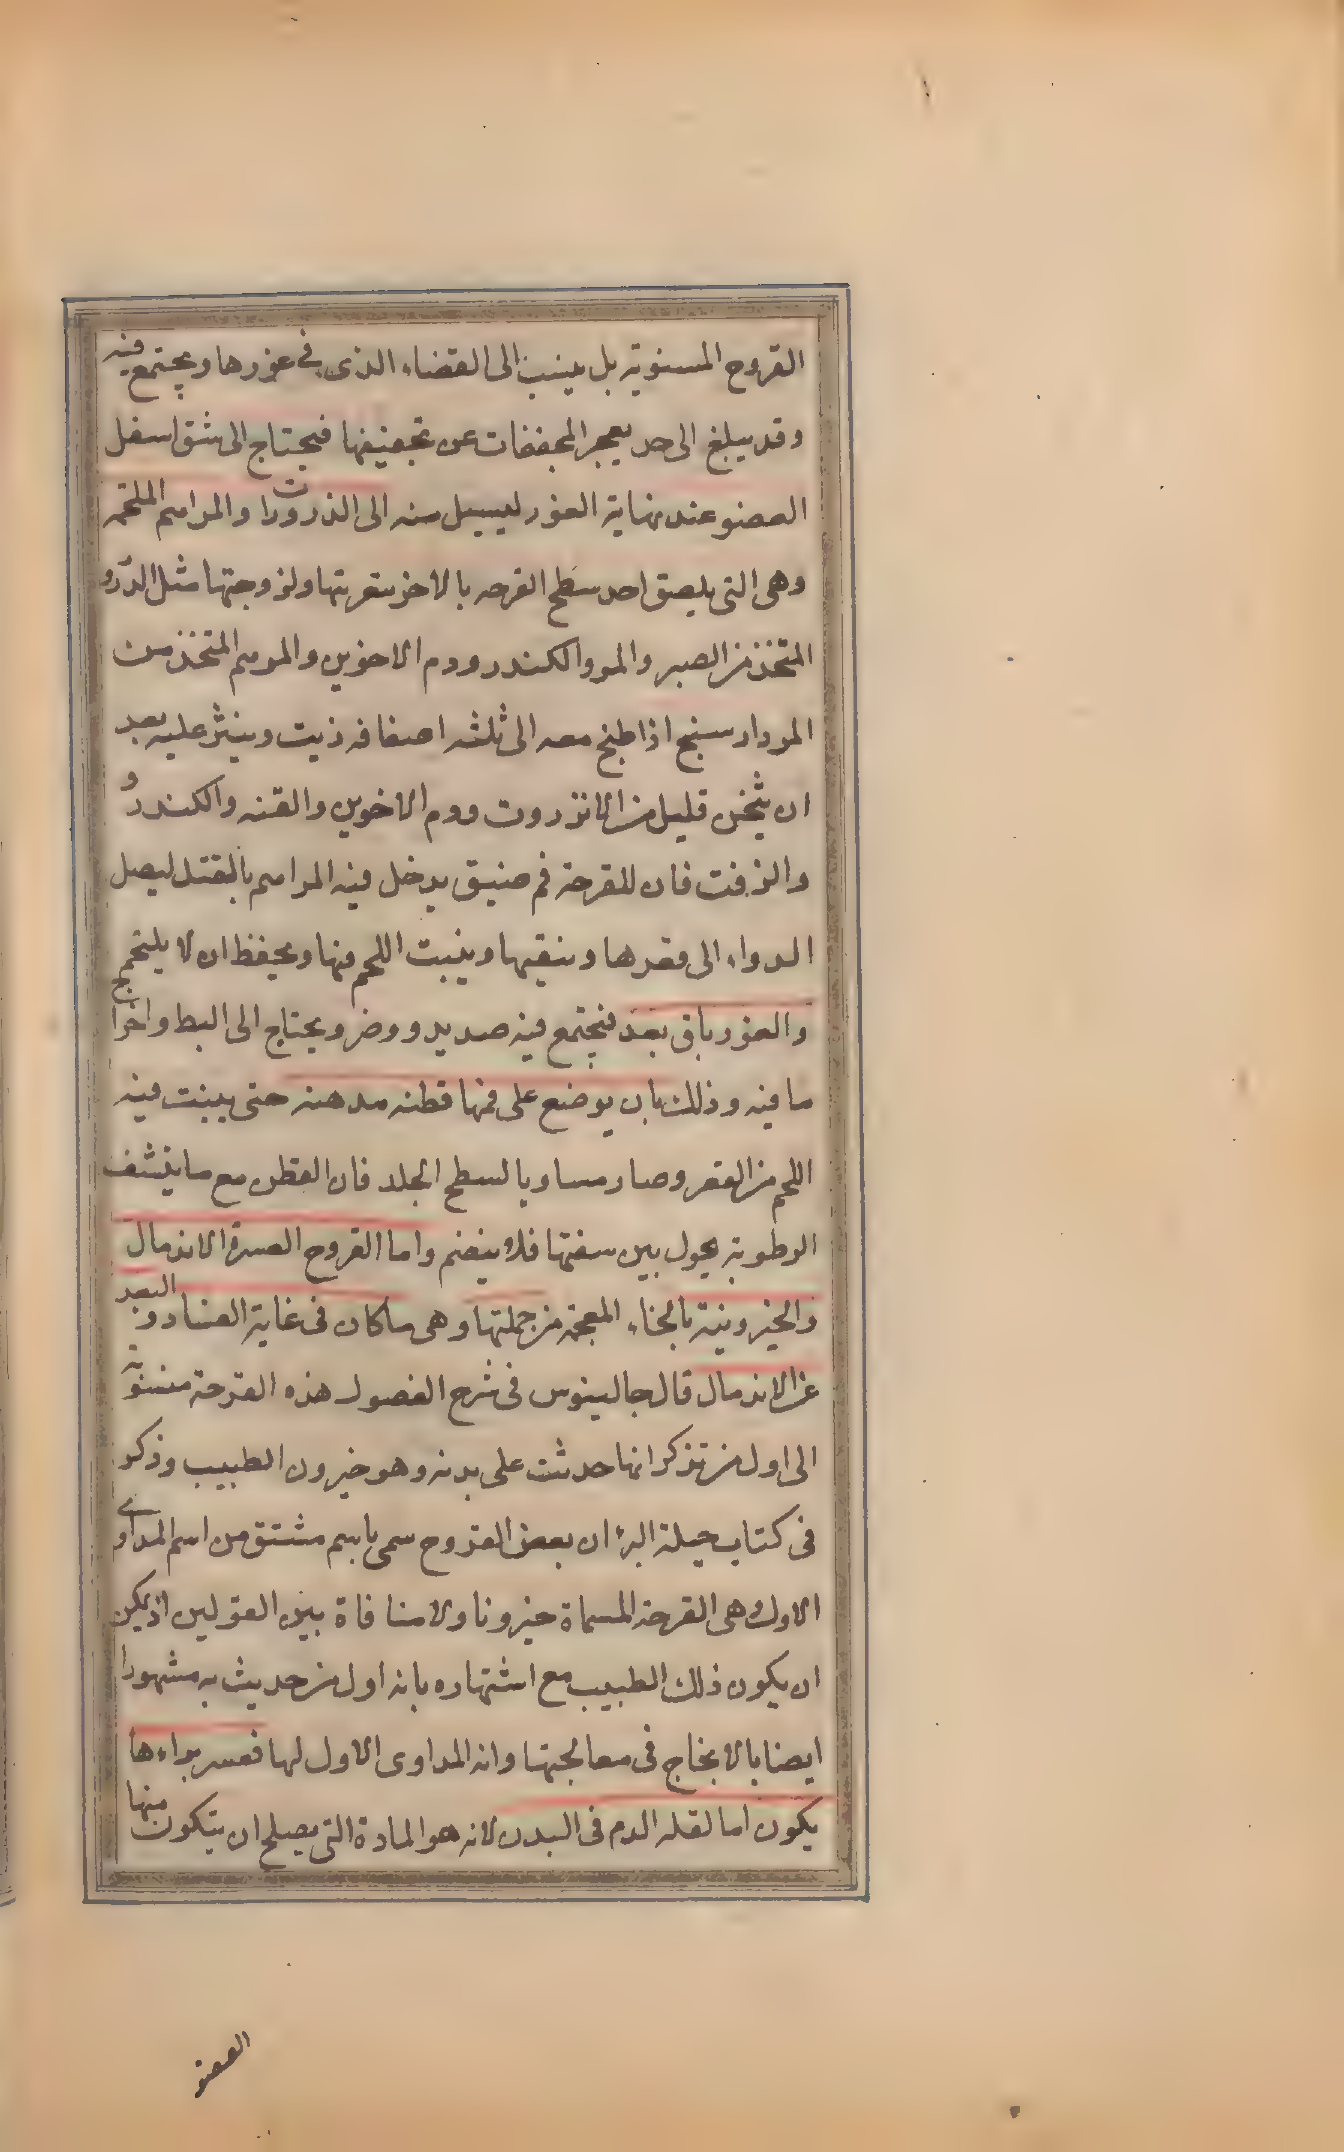 القروح المستوية بل ينبت الى الفضاء الذى فى غورها ويجتمع فيه
وقد يبلغ الى حد يعجز المجففات عن تجفيفها فيحتاج الى شق اسفل
العضو عند نهاية الغور ليسيل منه الى الذرورات والمراهم الملتحمه
وهى التى يلصق احد سطح القرحه بالاخر بتغريتها ولزوجتها مثل الذرو
المتخذ من الصبر والمر والكندر ودم الاخوين والمرهم المتخذ من
المرداسنج اذا طبخ معه الى ثلثه اضعافه زيت وينثر عليه بعد
ان يثخن قليل من الانزروت ودم الاخوين والقنه والكندر و
والزفت فان للقرحة فم ضيق يدخل فيه المراهم بالفتل ليصل
الدواء الى مقعرها وينقيها وينبت اللحم فيها ويحفظ ان لا يلتحم
والغور باقى بعد فيجتمع فيه صديد ووضر ويحتاج الى البط واخراج
ما فيه وذلك بان يوضع على فمها قطنه مدهنه حتى ينبت فيه
اللحم من القعر وصار مساويا لسطح الجلد فان القطن مع ما ينشف
الرطوبة يحول بين شفتها فلا ينضم واما القروح العسرة الاندمال
والخيرونية بالخاء المعجمة من جملتها وهى ما كان فى غاية العناد والبعد
عن الاندمال قال جالينوس فى شرح الفصول هذه القرحة منسوبة
الى اول من تذكر انها حدثت على بدنه وهو خيرون الطبيب وذكر
فى كتاب حيلة البرء ان بعض القروح سمى باسم مشتق من اسم المداوى
الاول وهى القرحة المسماة خيرونا ولا منافاة بين القولين اذ يمكن
ان يكون ذلك الطبيب مع اشتهاره بانه اول من حديث به مشهورا
ايضا بالانجاح فى معالجتها وانه المداوى الاول لها فعسر براءها
يكون اما لقله الدم فى البدن لانه هو المادة التى يصلح ان يتكون منها
العضو